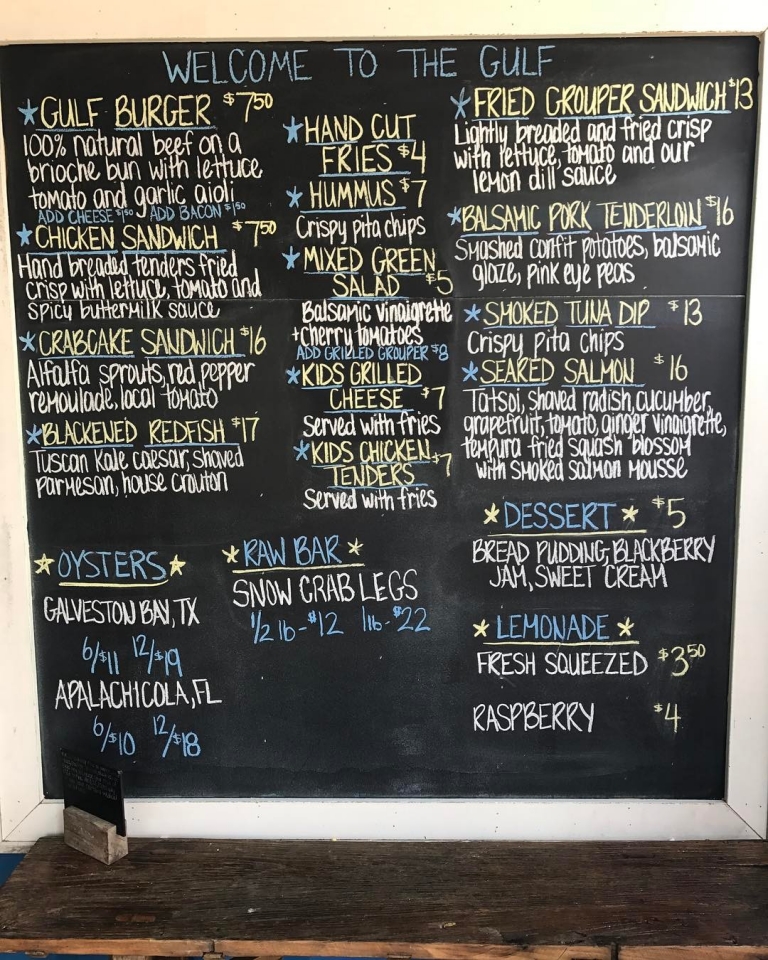 WELCOME TO THE GULF
GULF BURGER $7.50
100% natural beef on a
brioche bun with lettuce
tomato and garlic aioli
ADD CHEESE $1.50 ADD BACON $1.50
CHICKEN SANDWICH $7.50
Hand breaded tenders fried
crisp with lettuce, tomato and
spicy buttermilk sauce
CRABCAKE SANDWICH $16
Alfalfa sprouts, red pepper
remoulade, local tomato
BLACKENED REDFISH $17
Tuscan Kale caesar, shaved
parmesan, house crouton
HAND CUT
FRIES $4
HUMMUS $7
Crispy pita chips
MIXED GREEN
SALAD $5
Balsamic vinaigrette
+cherry tomatoes
ADD GRILLED GROUPER $8
KIDS GRILLED
CHEESE $7
Served with fries
KIDS CHICKEN
TENDERS $7
Served with fries
FRIED GROUPER SANDWICH $13
Lightly breaded and fried crisp
with lettuce, tomato and our
lemon dill sauce
BALSAMIC PORK TENDERLOIN $16
Smashed confit potatoes, balsamic
glaze, pink eye peas
SMOKED TUNA DIP $13
Crispy pita chips
SEARED SALMON $16
Tatsoi, shaved radish, cucumber,
grapefruit, tomato, ginger vinaigrette,
tempura fried squash blossom
with smoked salmon mousse
OYSTERS
GALVESTON BAY, TX
6/$11 12/$19
APALACHICOLA, FL
6/$10 12/$18
RAW BAR
SNOW CRAB LEGS
1/2 lb-$12 1lb-$22
DESSERT $5
BREAD PUDDING, BLACKBERRY
JAM, SWEET CREAM
LEMONADE
FRESH SQUEEZED $3.50
RASPBERRY $4